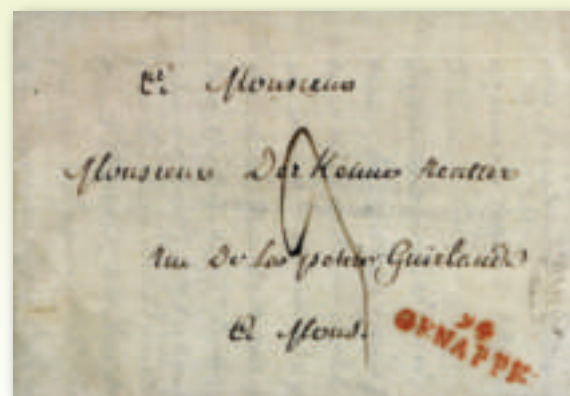 A Monsieur
Monsieur rentier
rue De La petite Guirlande
A Mons.
GENAPPE